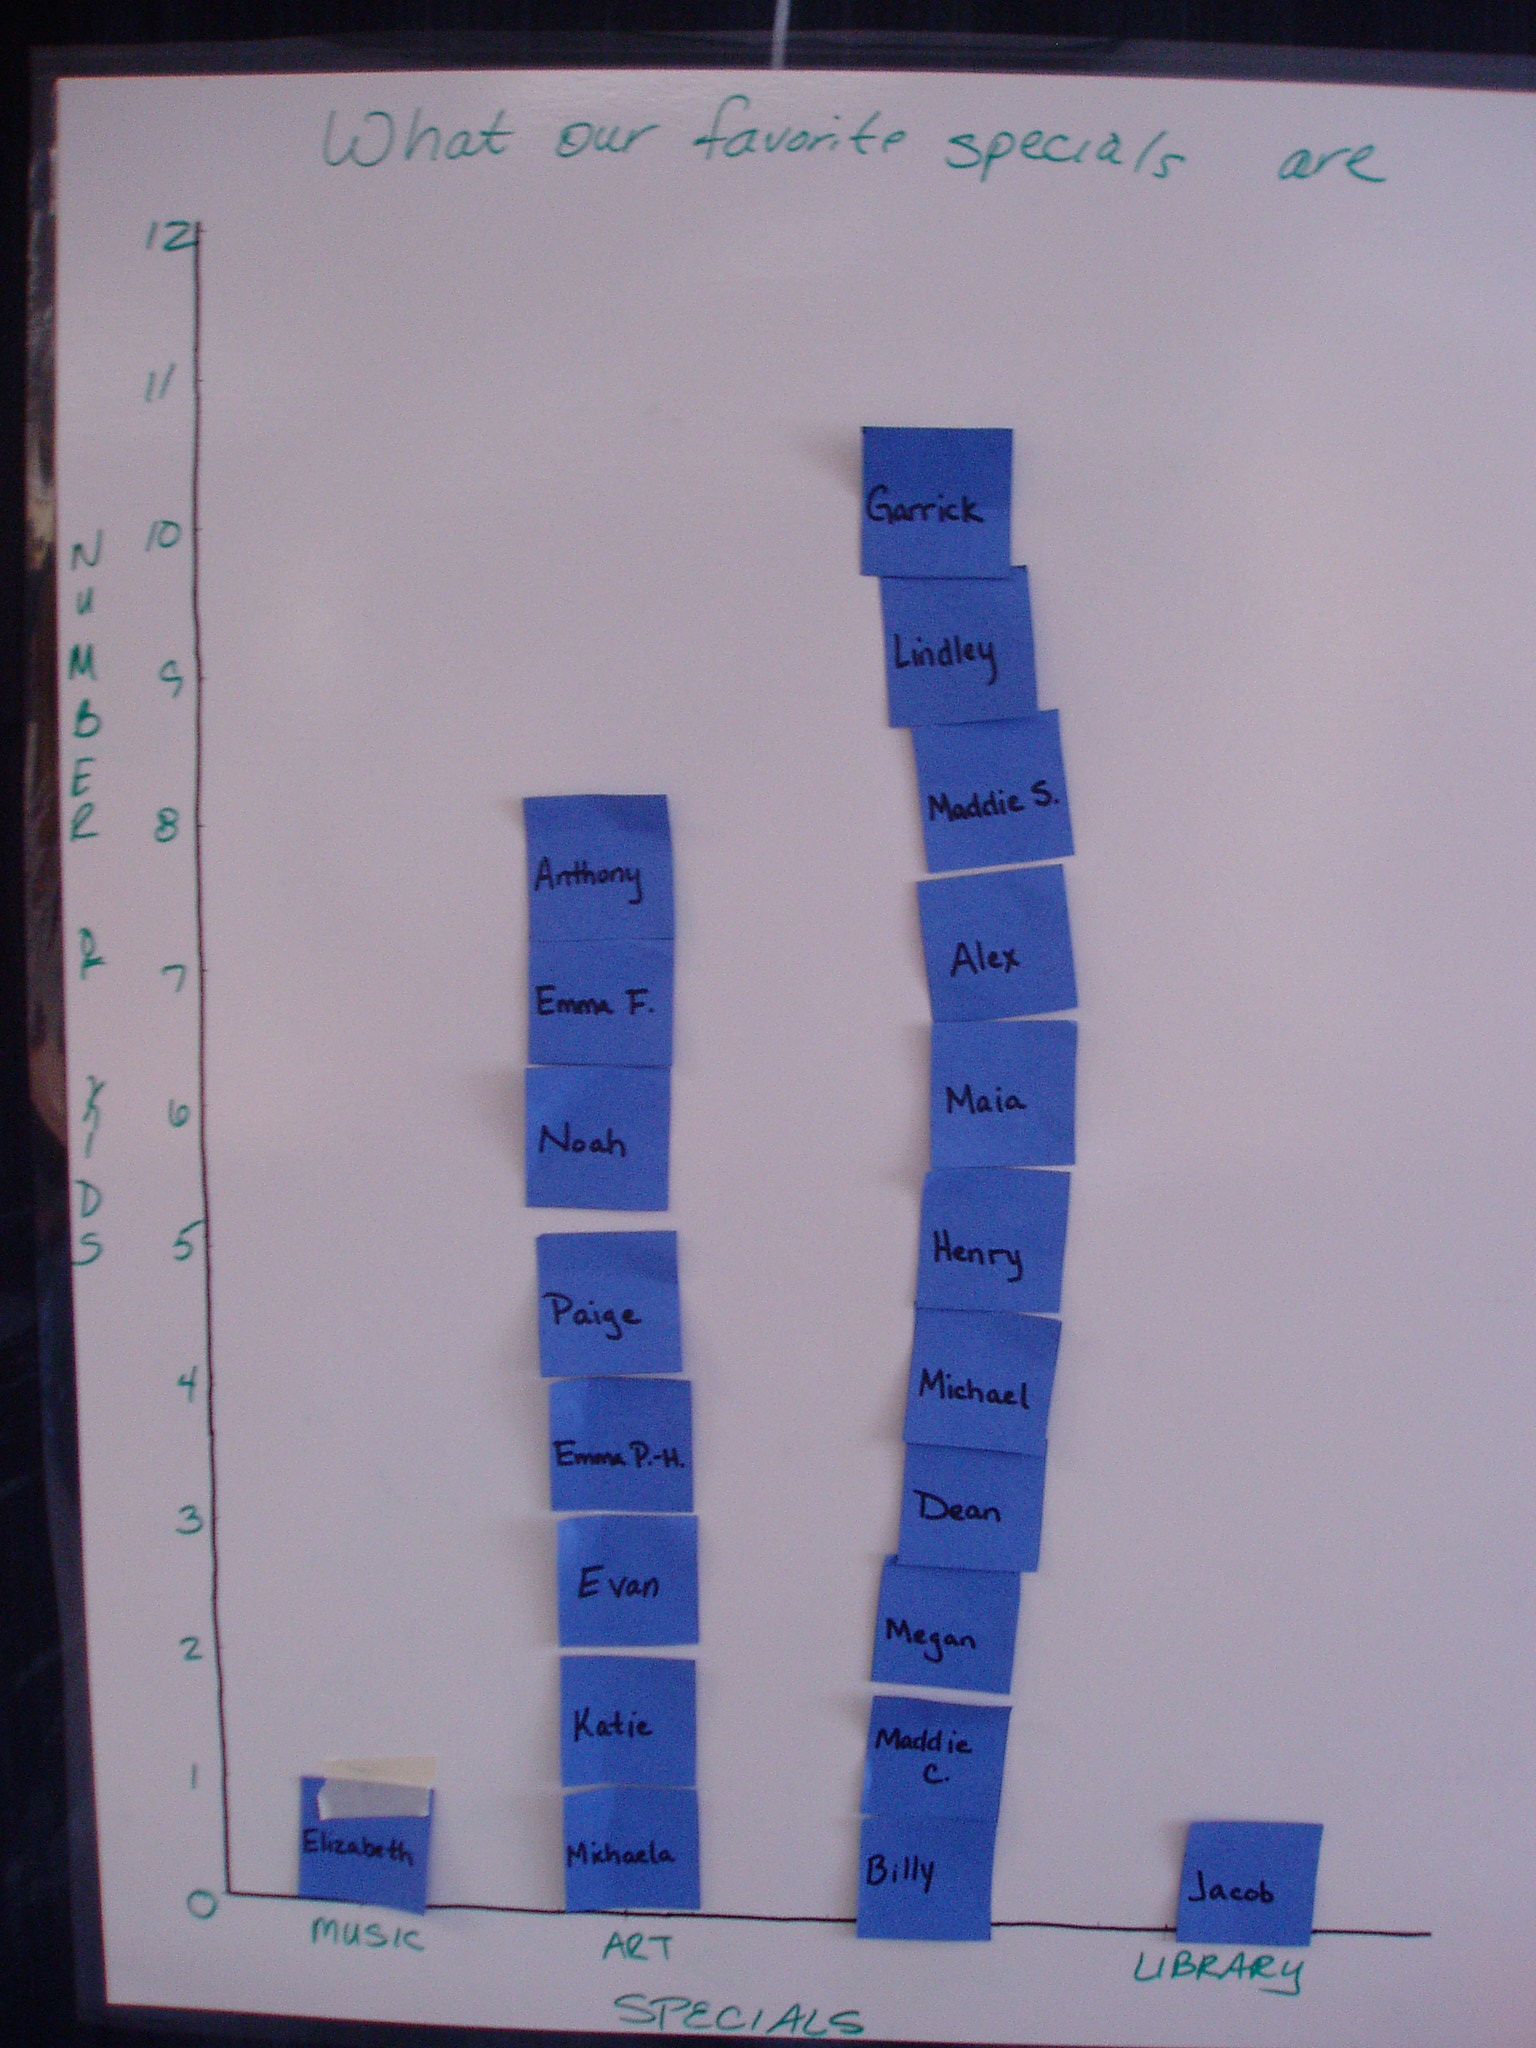 What our favorite specials are
12
11
10
9
8
7
6
5
4
3
2
1
0
NUMBER
KIDS
Garrick
Lindley
Maddie S.
Alex
Maia
Henry
Michael
Dean
Megan
Maddie
C.
Billy
Anthony
Emma F.
Noah
Paige
Emma P.-H.
Evan
Katie
Michaela
Elizabeth
Jacob
MUSIC
ART
LIBRARY
SPECIALS